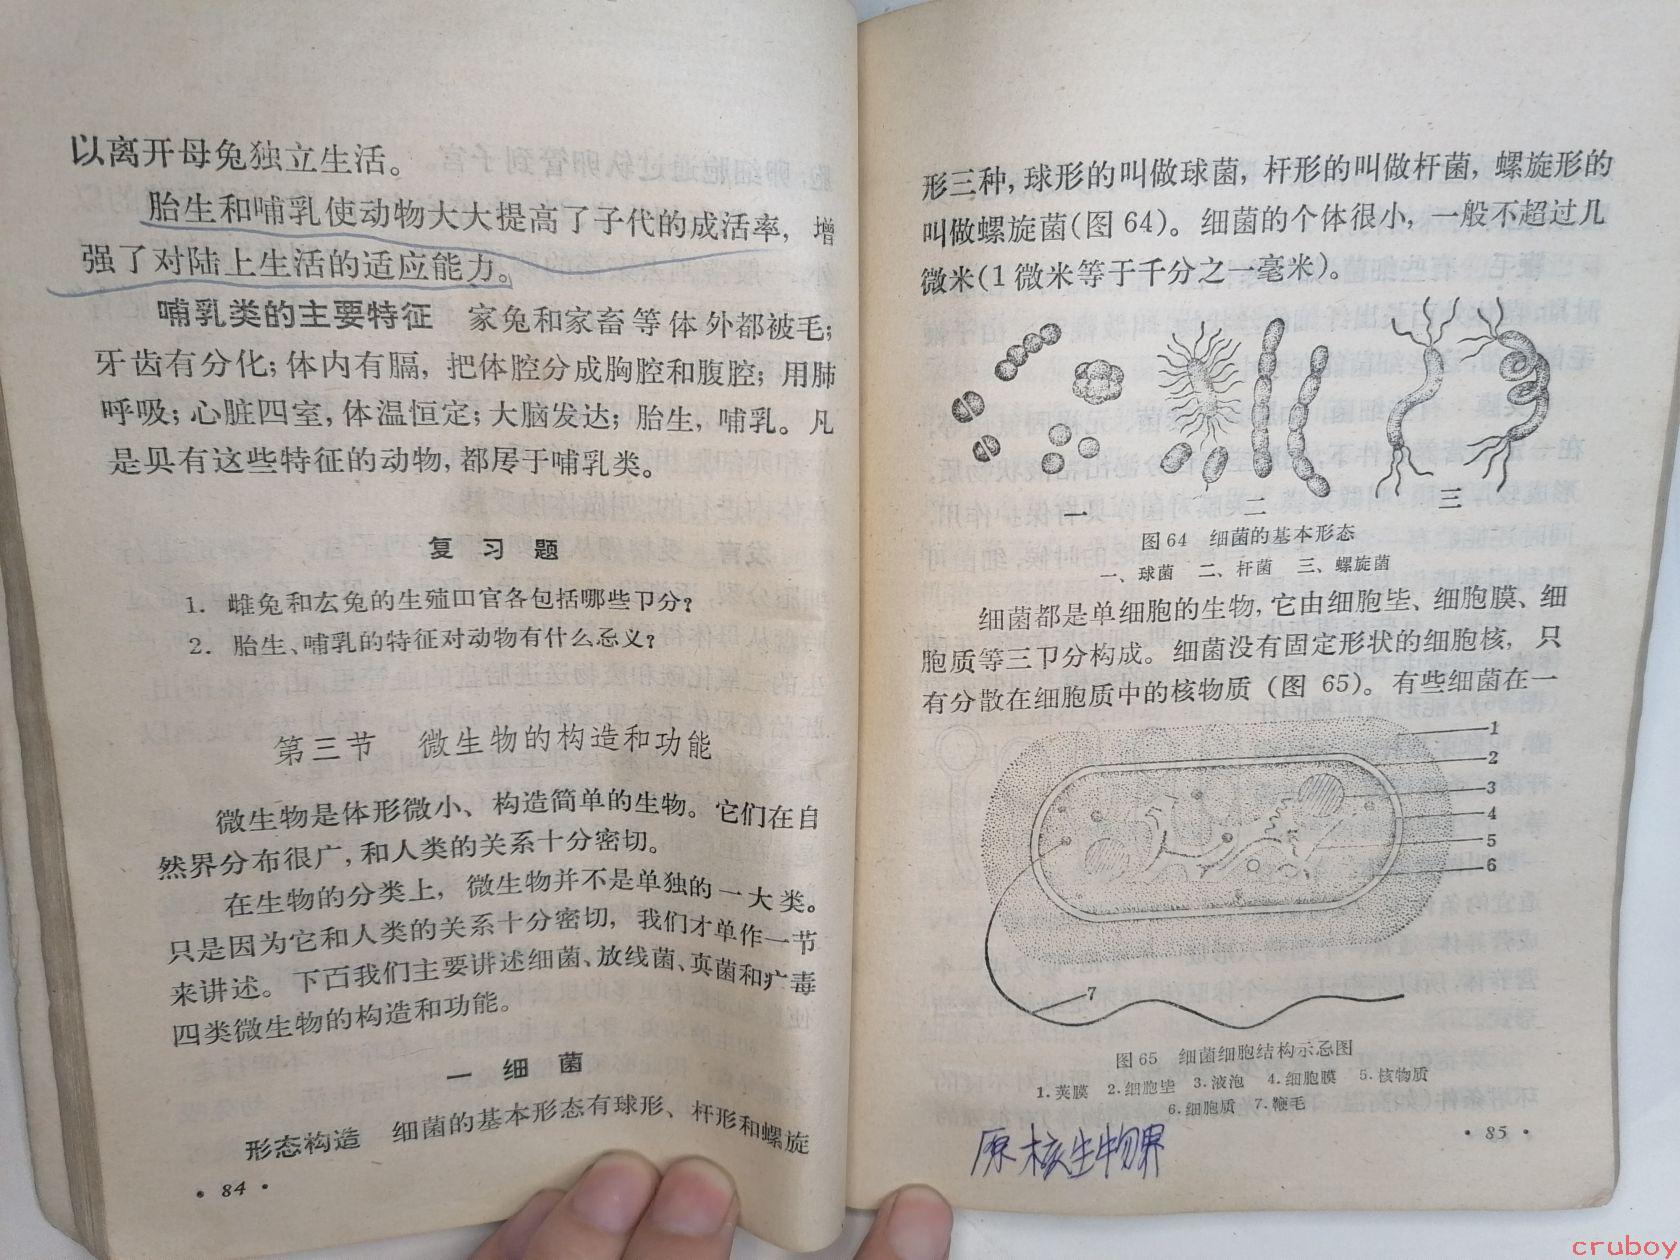 以离开母兔独立生活。
胎生和哺乳使动物大大提高了子代的成活率，增
强了对陆上生活的适应能力。
哺乳类的主要特征　家兔和家畜等体外都被毛；
牙齿有分化；体内有膈，把体腔分成胸腔和腹腔；用肺
呼吸；心脏四室，体温恒定；大脑发达；胎生，哺乳。凡
是具有这些特征的动物，都属于哺乳类。
复习题
1. 雌兔和厷兔的生殖器官各包括哪些卩分？
2. 胎生、哺乳的特征对动物有什么意义？
第三节　微生物的构造和功能
微生物是体形微小、构造简单的生物。它们在自
然界分布很广，和人类的关系十分密切。
在生物的分类上，微生物并不是单独的一大类。
只是因为它和人类的关系十分密切，我们才单作一节
来讲述。下面我们主要讲述细菌、放线菌、真菌和疒毒
四类微生物的构造和功能。
一　细　菌
形态构造　细菌的基本形态有球形、杆形和螺旋
• 84 •
形三种，球形的叫做球菌，杆形的叫做杆菌，螺旋形的
叫做螺旋菌(图 64)。细菌的个体很小，一般不超过几
微米(1 微米等于千分之一毫米)。
一　二　三
图 64　细菌的基本形态
一、球菌　二、杆菌　三、螺旋菌
细菌都是单细胞的生物，它由细胞坒、细胞膜、细
胞质等三卩分构成。细菌没有固定形状的细胞核，只
有分散在细胞质中的核物质（图 65）。有些细菌在一
1
2
3
4
5
6
7
图 65　细菌细胞结构示意图
1.荚膜　2.细胞坒　3.液泡　4.细胞膜　5.核物质
6.细胞质　7.鞭毛
原核生物界
• 85 •
cruboy